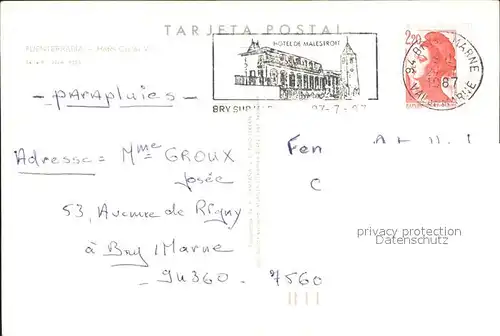 TARJETA POSTAL
FUENTERRABIA
HOTEL DE MALESTROIT
2,20
94 BRY SUR MARNE
1987
VAL DE MARNE
BRY SUR
27-7-87
- parapluies -
Adresse = Mme GROUX
Josée
53, Avenue de Rigny
à Bry / Marne
94360.
Fen
C
7560
privacy protection
Datenschutz